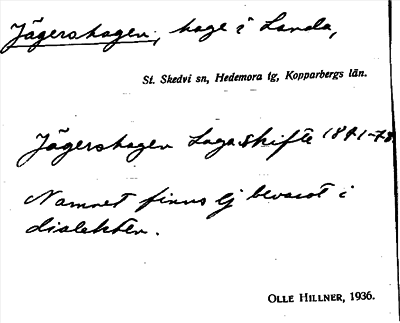 Jägershagen, hage i Landa,
St. Skedvi sn, Hedemora tg, Kopparbergs län.
Jägershagen Laga skifte 1871-78
Namnet finns ej bevarat i
dialekten.
OLLE HILLNER, 1936.